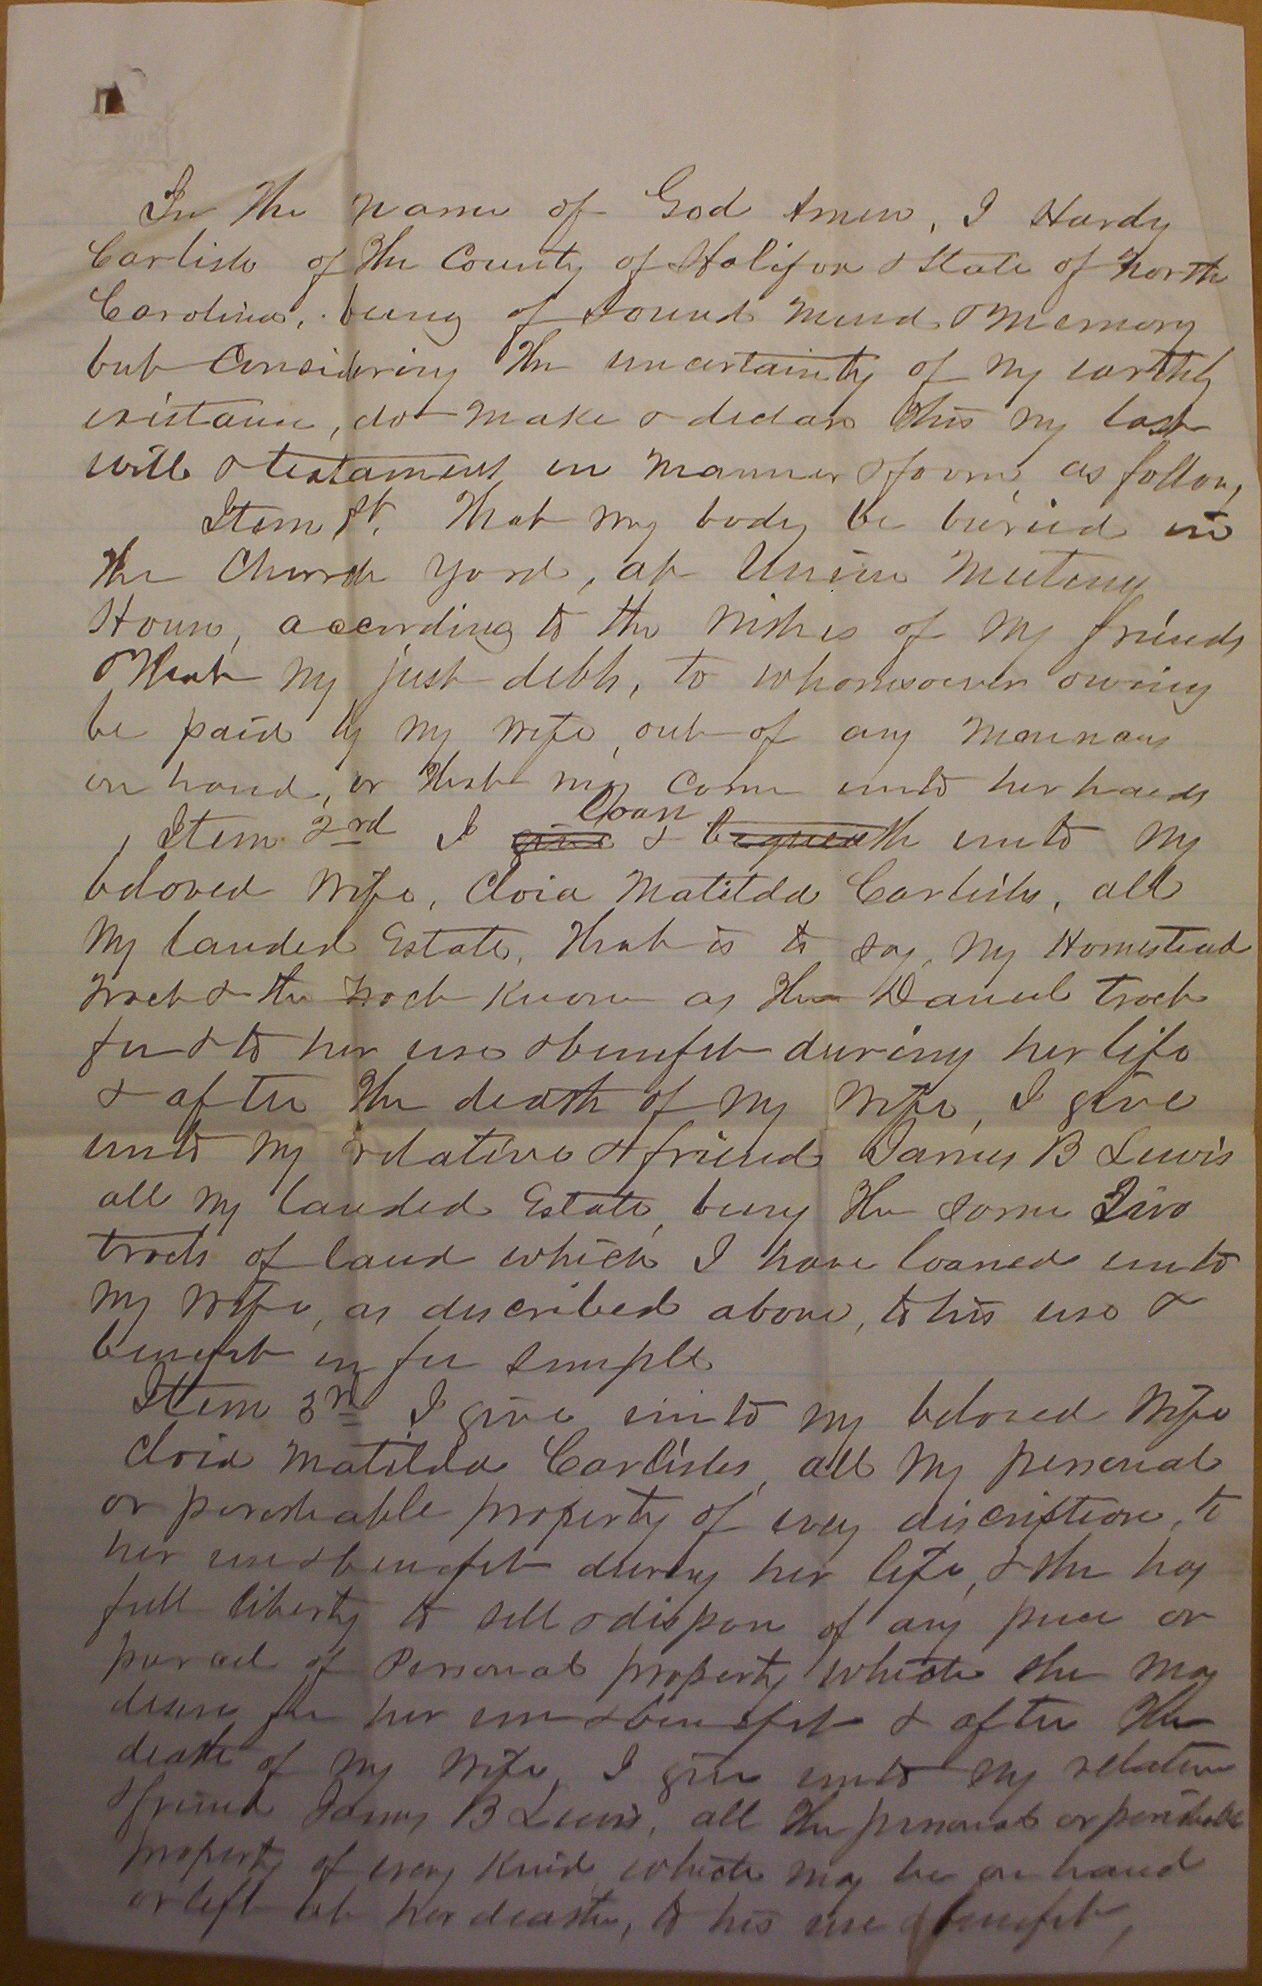 In the name of God Amen, I Hardy
Carlisle of the County of Halifax & State of North
Carolina, being of sound mind & memory
but Considering the uncertainty of my earthly
existance, do make & declare this my last
will & testament in manner & form, as follow,
Item 1st. That my body be buried in
the Church yard, at Union Meeting
House, according to the wishes of my friends
& that my just debts, to whomsoever owing
be paid by my wife, out of any
on hand, or that may come into her hands
Item 2rd I give loan & bequeath unto my
beloved wife, Cloia Matilda Carlisle, all
my landed Estate, that is to say, my Homestead
tract & the tract known as the Daniel tract
for & to her use & benefit during her life
& after the death of my wife, I give
unto my relative & friend James B Lewis
all my landed Estate, being the same two
tracts of land which I have loaned unto
my wife, as discribed above, to his use &
benefit in fee simple
Item 3rd I give unto my beloved wife
Cloia Matilda Carlisle, all my personal
or perishable property of every discription, to
her use & benefit during her life, & she has
full liberty to sell & dispose of any piece or
parcel of Personal property which she may
desire for her use & benefit & after the
death of my wife, I give unto my relative
& friend James B Lewis, all the personal or perishable
property of every kind which may be on hand
or left at her death, to his use & benefit,